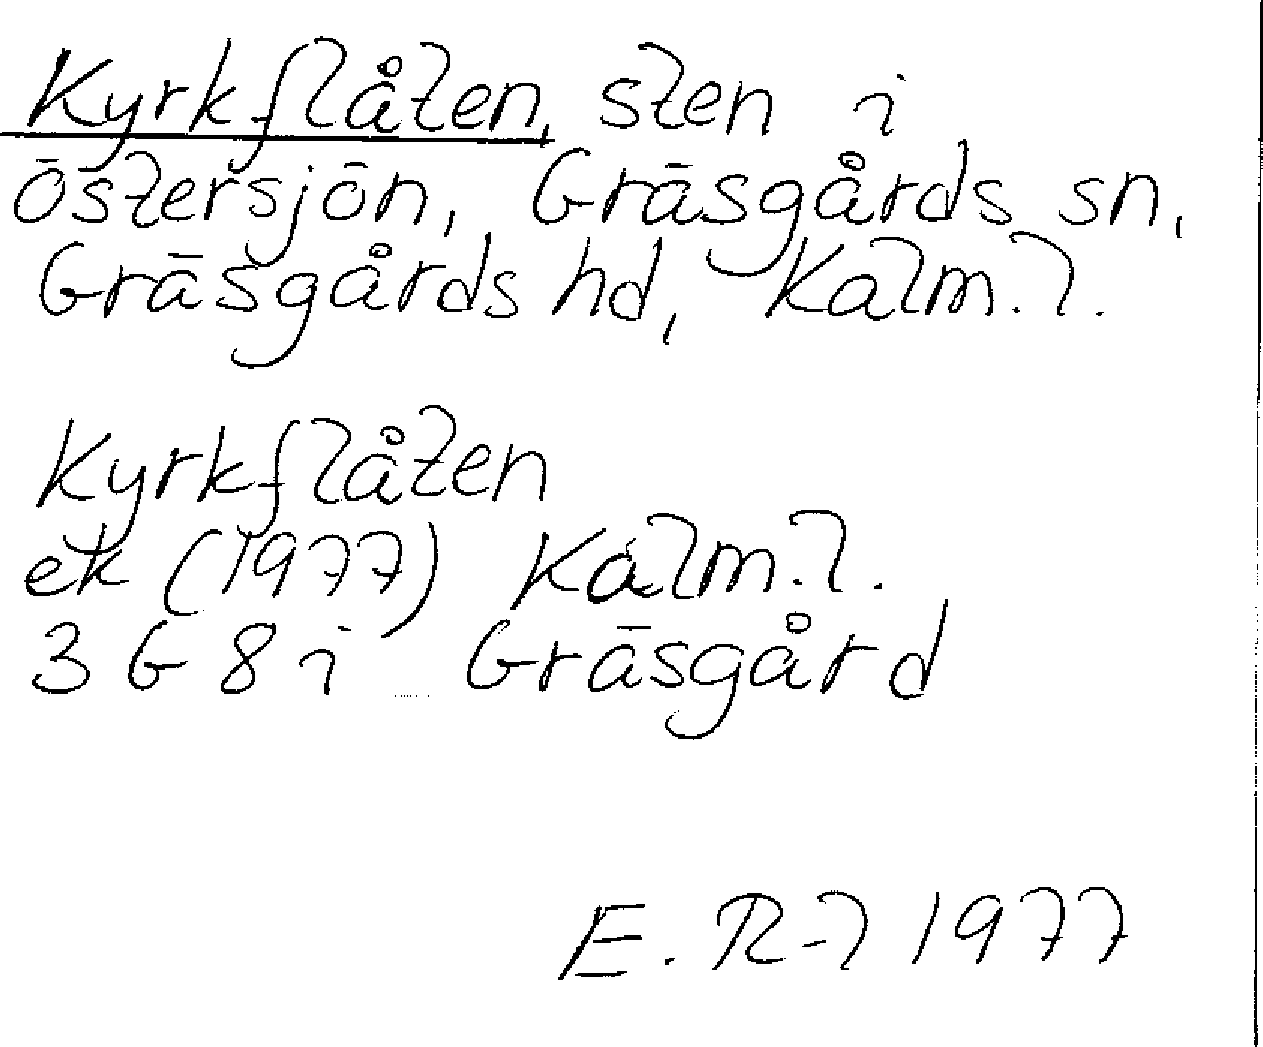 Kyrkflåten, sten i
Östersjön, Gräsgårds sn,
Gräsgårds hd, Kalm. l.
Kyrkflåten
ek (1977) Kalm. l.
3 G 8 i Gräsgård
E. R-l 1977